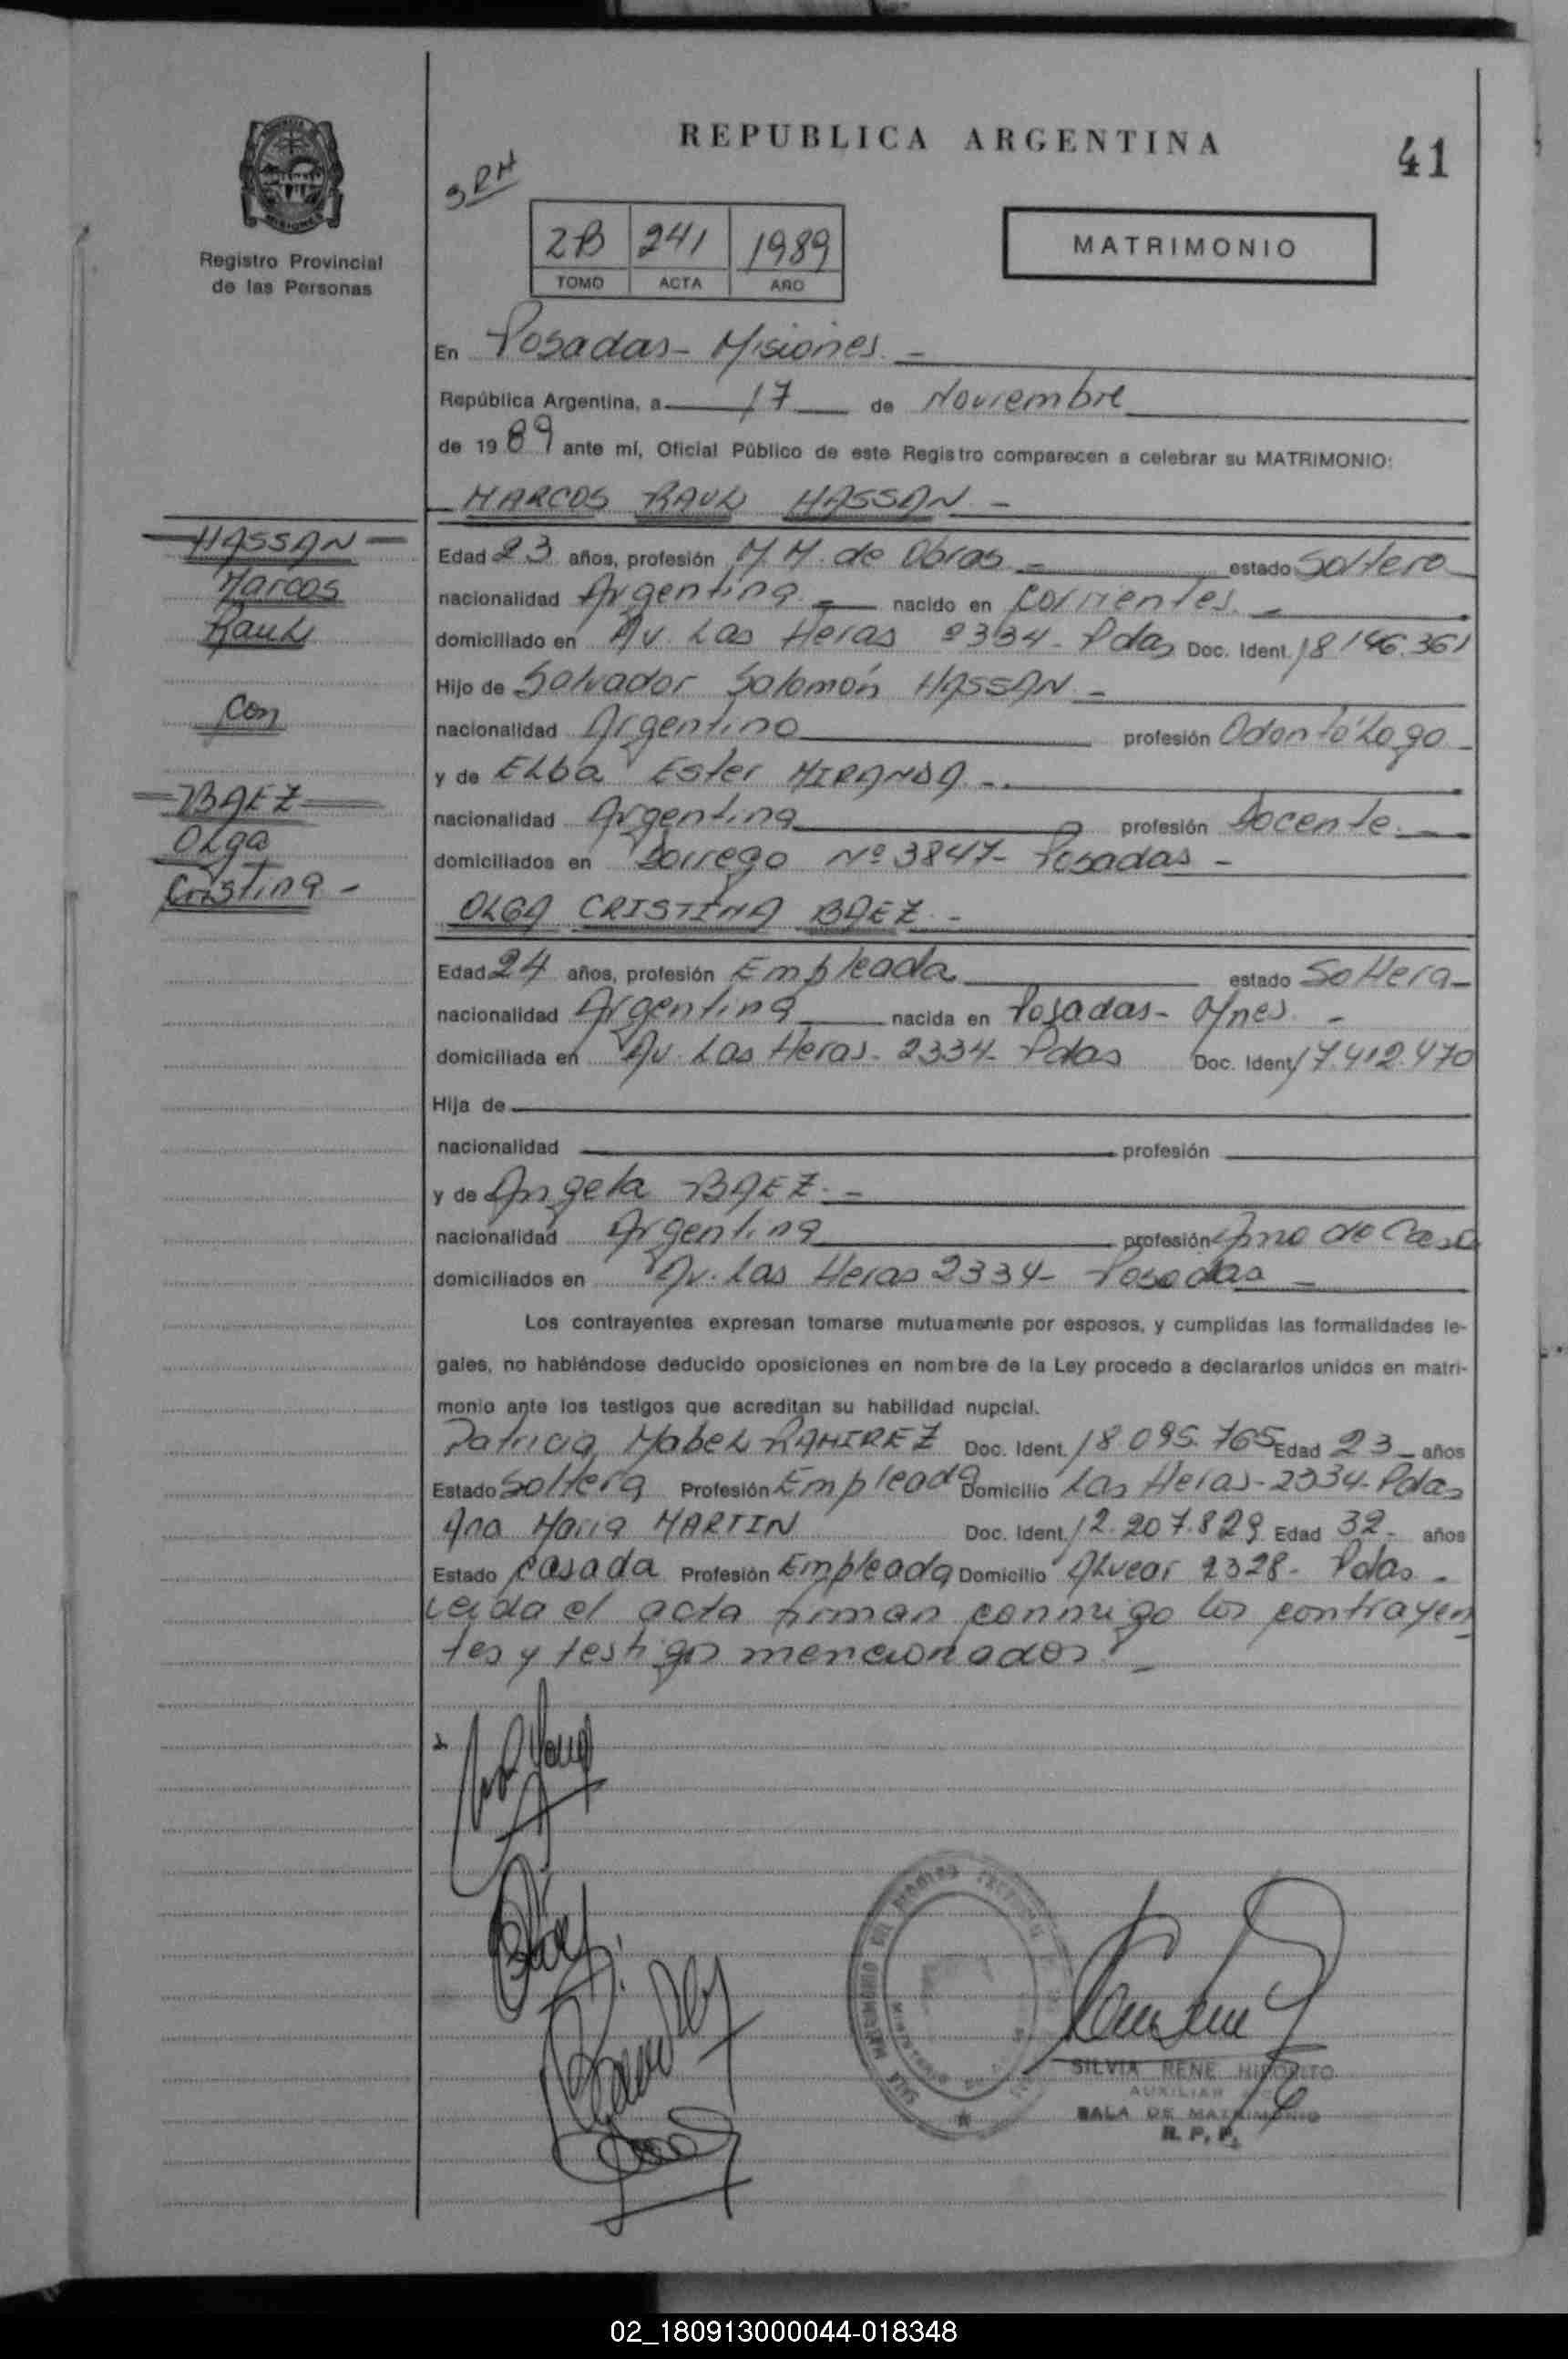 REPUBLICA ARGENTINA
41
3 RH
2B 241 1989
TOMO ACTA AÑO
MATRIMONIO
MISIONES
Registro Provincial
de las Personas
En Posadas - Misiones. -
República Argentina, a 17 de Noviembre
de 19 89 ante mí, Oficial Público de este Registro comparecen a celebrar su MATRIMONIO:
MARCOS RAUL HASSAN. -
HASSAN
Marcos
Raul
con
BAEZ
Olga
Cristina -
Edad 23 años, profesión M.M. de Obras - estado Soltero
nacionalidad Argentina. - nacido en Corrientes. -
domiciliado en Av. Las Heras 2334 - Pdas Doc. Ident. 18 146.361
Hijo de Salvador Salomón HASSAN. -
nacionalidad Argentino profesión Odontólogo -
y de Elba Ester MIRANDA. -
nacionalidad Argentina profesión Docente. -
domiciliados en Dorrego Nº 3847 - Posadas -
OLGA CRISTINA BAEZ. -
Edad 24 años, profesión Empleada estado Soltera -
nacionalidad Argentina nacida en Posadas - Mnes. -
domiciliada en Av. Las Heras - 2334 - Pdas Doc. Ident. 17.412.470
Hija de
nacionalidad profesión
y de Angela BAEZ. -
nacionalidad Argentina profesión Ama de Casa
domiciliados en Av. Las Heras 2334 - Posadas -
Los contrayentes expresan tomarse mutuamente por esposos, y cumplidas las formalidades le-
gales, no habiéndose deducido oposiciones en nombre de la Ley procedo a declararlos unidos en matri-
monio ante los testigos que acreditan su habilidad nupcial.
Patricia Mabel RAMIREZ Doc. Ident. 18 095.765 Edad 23 - años
Estado Soltera Profesión Empleada Domicilio Las Heras - 2334 - Pdas
Ana Maria MARTIN Doc. Ident. 12.207.829 Edad 32 - años
Estado Casada Profesión Empleada Domicilio Alvear 2328 - Pdas -
Leida el acta firman conmigo los contrayen
tes y testigos mencionados. -
SILVIA RENE HIPOLITO
AUXILIAR
SALA DE MATRIMONIO
R. P. P.
02_180913000044-018348